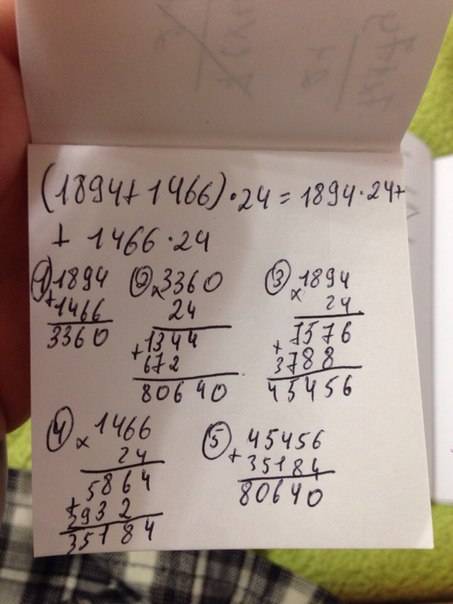 (1894+1466)·24=1894·24+
+ 1466·24
① 1894
+1466
3360
② ×3360
24
1344
+672
80640
③ ×1894
24
7576
+3788
45456
④ ×1466
24
5864
+2932
35184
⑤ 45456
+35184
80640